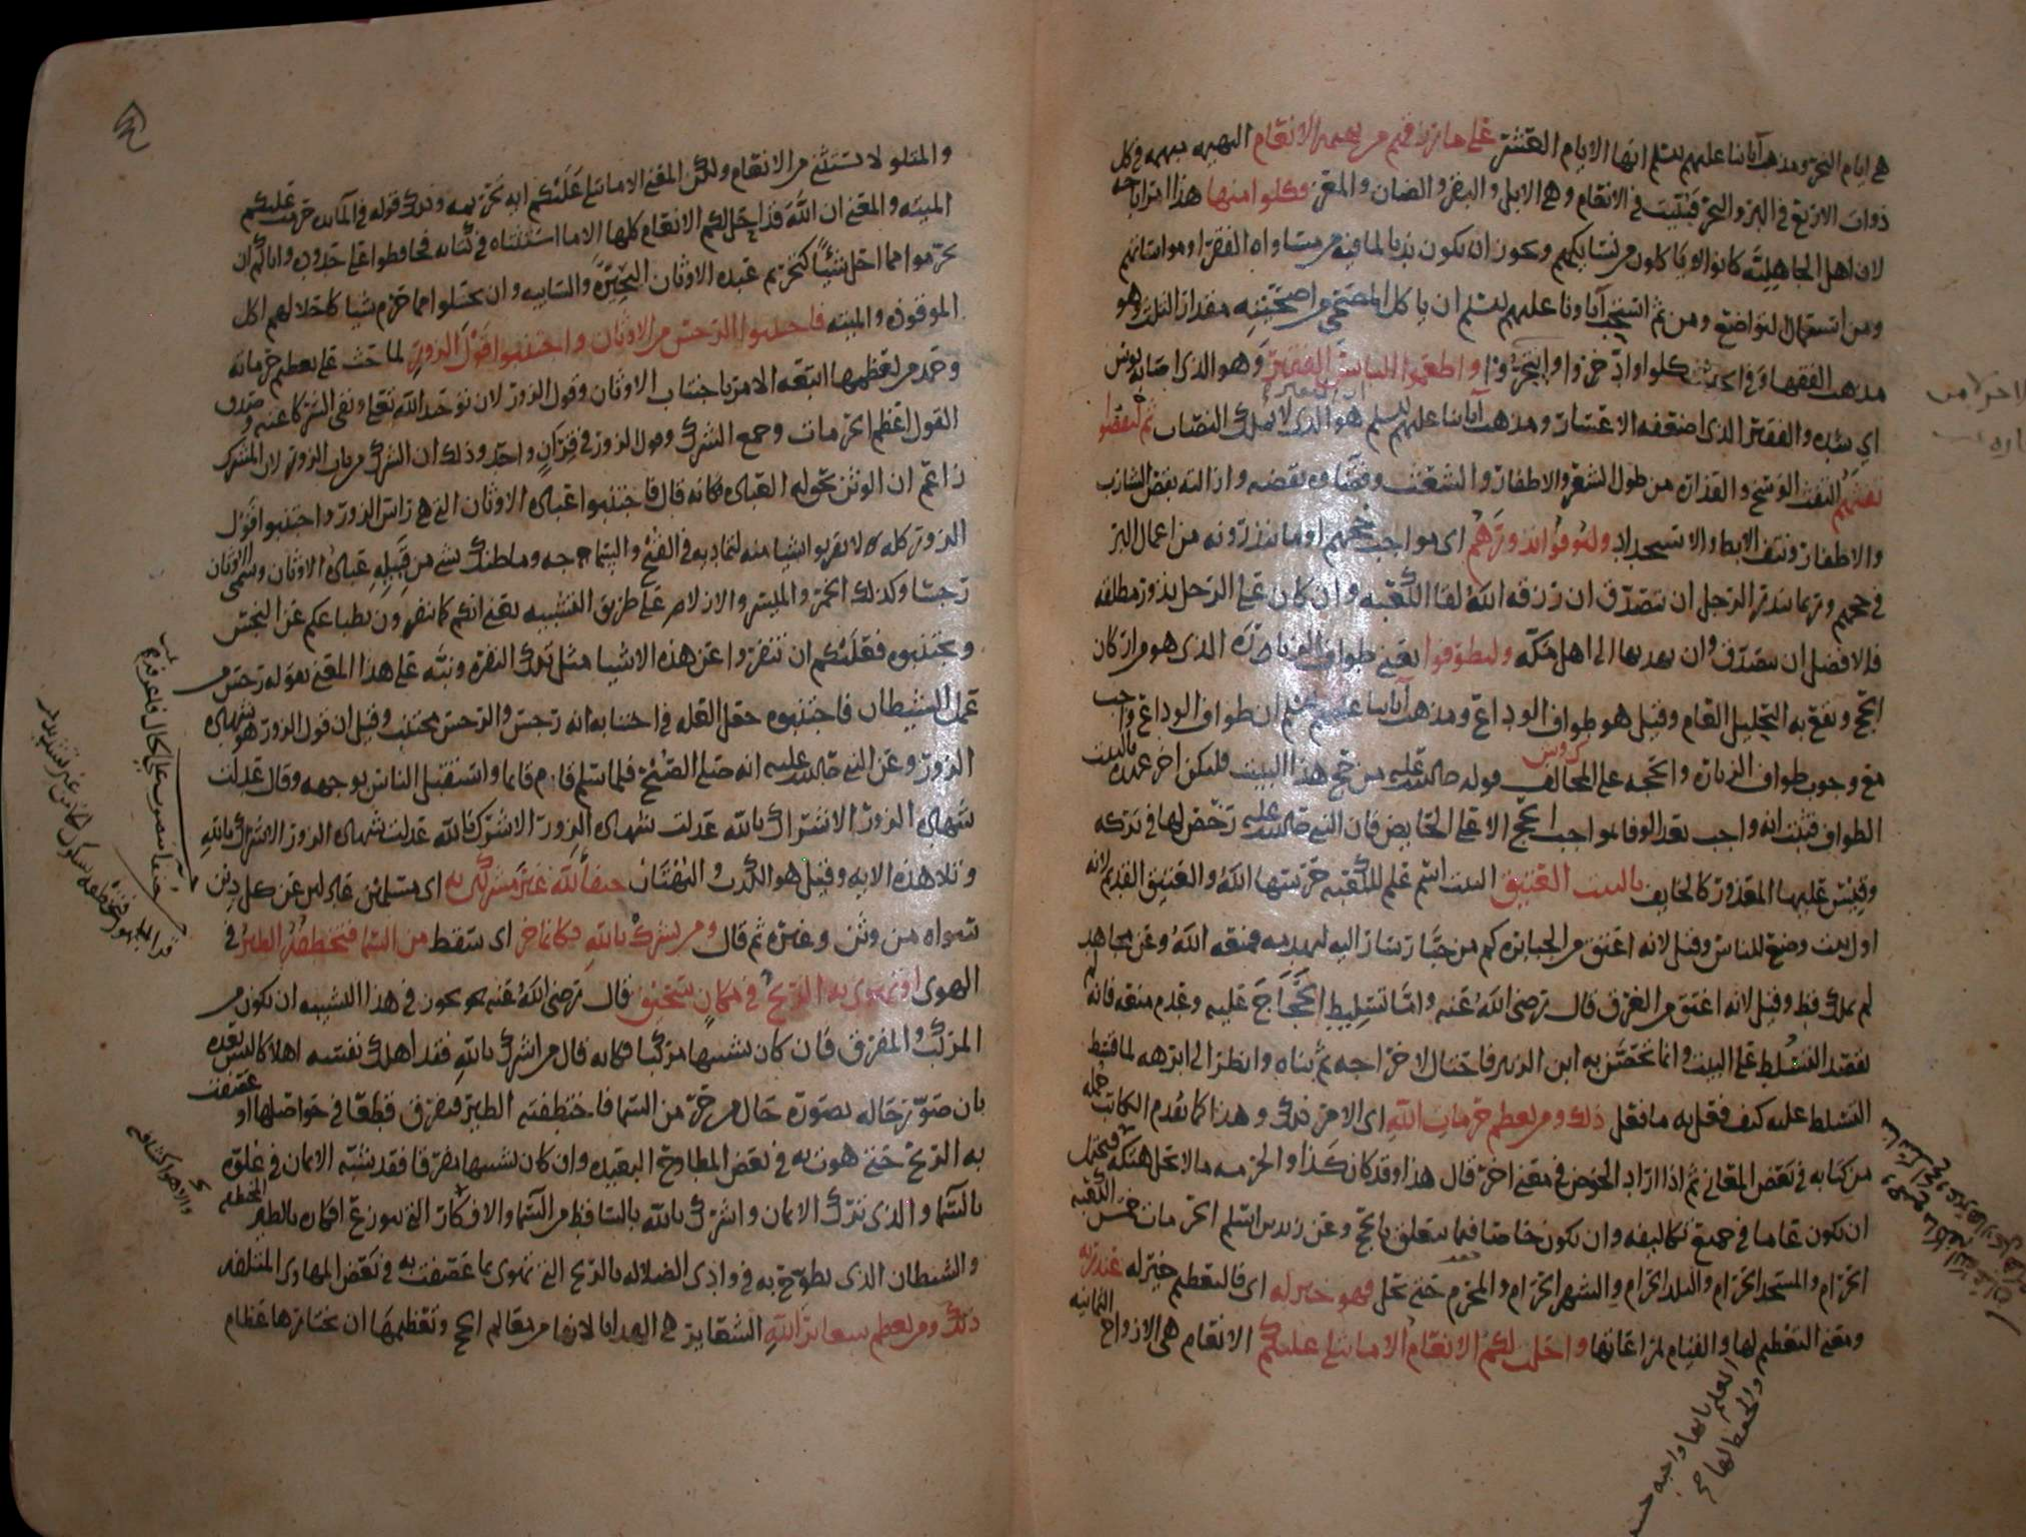 هي ايام النحر ومذهب آبائنا عليهم السلم انها الايام العشر على ما رزقهم من بهيمة الانعام البهيمة مبهمة في كل
ذوات الاربع في البر والبحر فبينت في الانعام وهي الابل والبقر والضان والمعز فكلوا منها هذا امر اباحه
لان اهل الجاهلية كانوا لا ياكلون من نسايكهم ويجوز ان يكون ندبا لما فيه من مساواه الفقرا ومواساتهم
ومن استعمال التواضع ومن ثم استحب آباونا عليهم السلم ان ياكل المضحي من اضحيته مقدار الثلث وهو
مذهب الفقها وفي الحديث كلوا وادخروا وايتجروا واطعموا البائس الفقير وهو الذي اصابه بوس
اي شده والفقير الذي اضعفه الاعسار ومذهب آبائنا عليهم السلم هو الذي لا يملك النصاب ثم ليقضوا
تفثهم التفث الوسخ والقذاره من طول الشعر والاظفار والشعث وقضاوه نقضه وازالته بقص الشارب
والاظفار ونتف الابط والاستحداد وليوفوا نذورهم اي مواجب حجهم او ما ينذرونه من اعمال البر
في حجهم وربما ينذر الرجل ان يتصدق ان رزقه الله لقا الكعبه وان كان على الرجل نذور مطلقه
فالافضل ان يتصدق وان يهديها الى اهل مكه وليطوفوا يعني طواف الزيارة الذي هو من اركان
الحج ويقع به التحليل التام وقيل هو طواف الوداع ومذهب آبائنا عليهم السلم ان طواف الوداع واجب
مع وجوب طواف الزياره والحجه على المخالف قوله صلى الله عليه من حج هذا البيت فليكن اخر عهده بالبيت
الطواف فثبت انه واجب بعد الوفا بمواجب الحج الا على الحايض فان النبي صلى الله عليه رخص لها في تركه
وقيس عليها المعذور كالخايف بالبيت العتيق البيت اسم علم للكعبه حرسها الله والعتيق القديم لانه
اول بيت وضع للناس وقيل لانه اعتق من الجبابره كم من جبار سار اليه ليهدمه فمنعه الله وعن مجاهد
لم يملك قط وقيل لانه اعتق من الغرق قال رضي الله عنه واما تسليط الحجاج عليه وعدم منعه فانه لم
يقصد التسلط على البيت وانما تحصن به ابن الزبير فاحتال لاخراجه ثم بناه وانظر الى ابرهه لما قصد
التسلط عليه كيف فعل به ما فعل ذلك ومن يعظم حرمات الله اي الامر ذلك وهذا كما يقدم الكاتب جمله
من كتابه في بعض المعاني ثم اذا اراد الخوض في معنى اخر قال هذا وقد كان كذا والحرمه ما لا يحل هتكه فيحتمل
ان يكون عاما في جميع تكاليفه وان يكون خاصا فيما يتعلق بالحج وعن زيد بن اسلم الحرمات خمس الكعبه
الحرام والمسجد الحرام والبلد الحرام والشهر الحرام والمحرم حتى يحل فهو خير له اي فالتعظيم خير له عند ربه
ومعنى التعظيم لها والقيام لمراعاتها واحلت لكم الانعام الا ما يتلى عليكم الانعام هي الازواج الثمانيه
والمتلو لا يستثنى من الانعام ولكن المعنى الا ما يتلى عليكم ايه تحريمه وذلك قوله في المائده حرمت عليكم
الميته والمعنى ان الله قد احل لكم الانعام كلها الا ما استثناه في كتابه فحافظوا على حدوده واياكم ان
تحرموا مما احل شيئا كتحريم عبده الاوثان البحيره والسايبه وان تحلوا مما حرم شيا كاحلالهم اكل
الموقوذه والميته فاجتنبوا الرجس من الاوثان واجتنبوا قول الزور لما حث على تعظيم حرماته
وحمد من يعظمها اتبعه الامر باجتناب الاوثان وقول الزور لان توحيد الله تعلى ونفي الشركا عنه وصدق
القول اعظم الحرمات وجمع الشرك وقول الزور في قران واحد وذلك ان الشرك من باب الزور لان المشرك
زاعم ان الوثن تحق له العباده فكانه قال فاجتنبوا عباده الاوثان التي هي راس الزور واجتنبوا قول
الزور كله لا تقربوا شيا منه لتماديه في القبح والسماجه وما ظنك بشي من قبيله عباده الاوثان وسمى الاوثان
رجسا وكذلك الخمر والميسر والازلام على طريق التشبيه يعني انكم كما تنفرون بطباعكم عن الرجس
وتجتنبوه فعليكم ان تنفروا عن هذه الاشيا مثل تلك النفره ونبه على هذا المعنى بقوله رجس من
عمل الشيطان فاجتنبوه جعل العله في اجتنابه انه رجس والرجس مجتنب وقيل ان قول الزور هو شهاده
الزور وعن النبي صلى الله عليه انه صلى الصبح فلما سلم قام قايما واستقبل الناس بوجهه وقال عدلت
شهاده الزور الاشراك بالله عدلت شهاده الزور الاشراك بالله عدلت شهاده الزور الاشراك بالله
وتلا هذه الايه وقيل هو الكذب والبهتان حنفا لله غير مشركين به اي مسلمين عادلين عن كل دين
سواه من وثن وغيره ثم قال ومن يشرك بالله فكانما خر اي سقط من السما فتخطفه الطير في
الهوى او تهوي به الريح في مكان سحيق قال رضي الله عنه يجوز في هذا التشبيه ان يكون من
المركب والمفرق فان كان تشبيها مركبا فكانه قال من اشرك بالله فقد اهلك نفسه اهلاكا ليس بعده
بان صور حاله بصوره حال من خر من السما فاختطفته الطير فتفرق قطعا في حواصلها او عصفت
به الريح حتى هوت به في بعض المطاوح البعيده وان كان تشبيها مفرقا فقد شبه الايمان في علوه
بالسما والذي ترك الايمان واشرك بالله بالساقط من السما والافكار التي توزع افكاره بالطير المختطفه
والشيطان الذي يطوح به في وادي الضلاله بالريح التي تهوي بما عصفت به في بعض المهاوي المتلفه
ذلك ومن يعظم شعائر الله الشعاير هي الهدايا لانها من معالم الحج وتعظيمها ان يختارها عظام